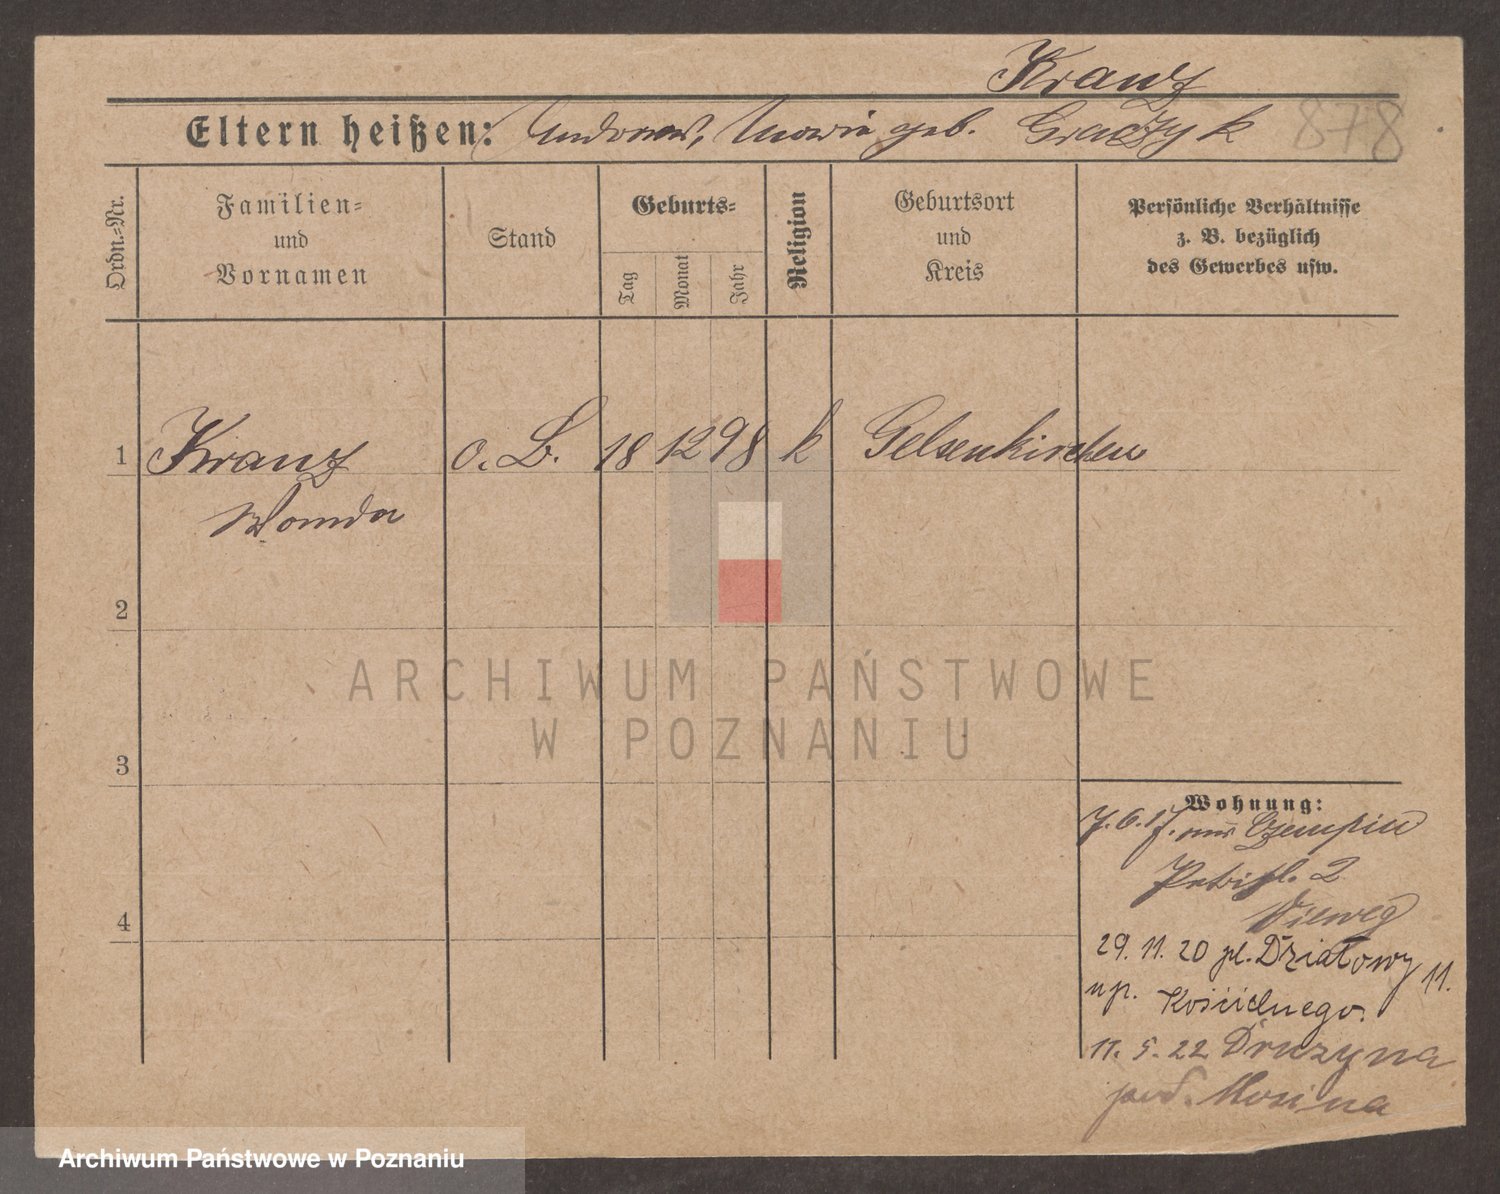 Kranz
Eltern heißen: Andreas, Maria geb. Graczyk
878
Ordn.-Nr.
Familien-
und
Vornamen
Stand
Geburts-
Tag
Monat
Jahr
Religion
Geburtsort
und
Kreis
Persönliche Verhältnisse
z. B. bezüglich
des Gewerbes usw.
1 Kranz o. B. 18 12 98 k Gelsenkirchen
Wanda
2
3
4
Wohnung:
7. 6. 17. aus Czempin
Petripl. 2
29. 11. 20 pl. Działowy 11.
up. Kościelnego.
11. 5. 22 Drużyna
pow. Mosina
ARCHIWUM PAŃSTWOWE
W POZNANIU
Archiwum Państwowe w Poznaniu